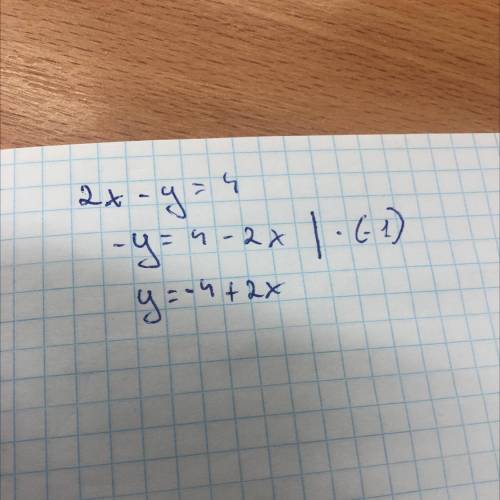 2x - y = 4
-y = 4 - 2x | · (-1)
y = -4 + 2x